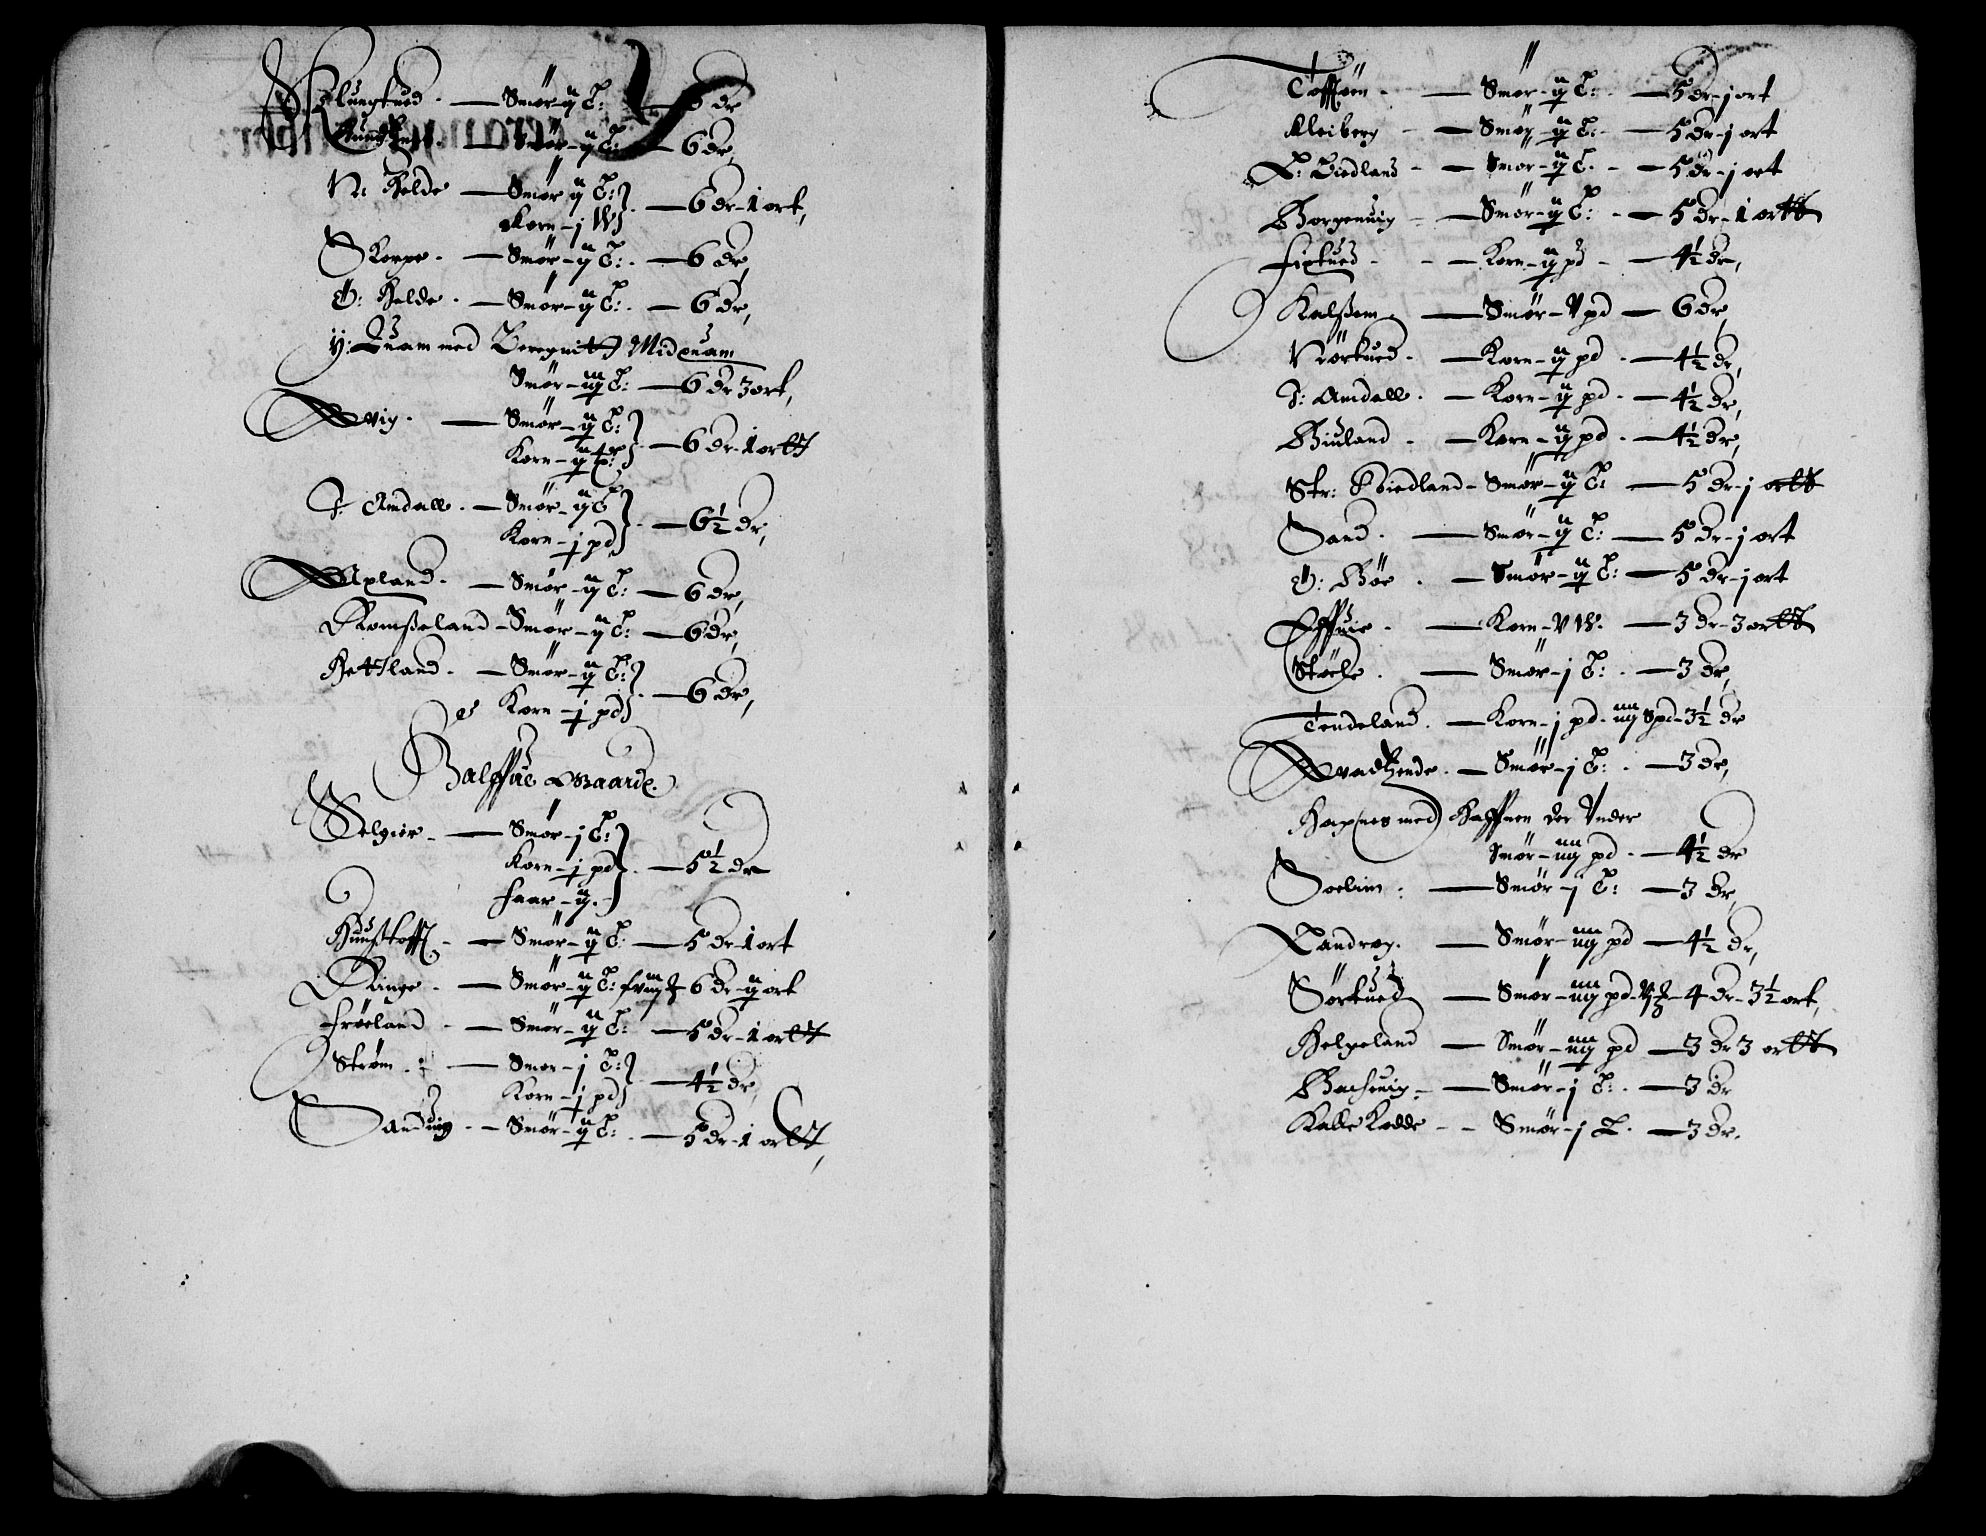 Klungtued - Smør - ij L: - 6 dr
- Smør - ij L: - 6 dr,
N: Helde - Smør ij L:
Korn - j W - 6 dr - 1 ort,
Skorpe - Smør - ij L: - 6 dr,
Ø: Helde - Smør - ij L: - 6 dr,
Y: Quam med Beregnit Midquam
Smør - iij L: - 6 dr 3 ort,
Avig - Smør - ij L:
Korn - ij - 6 dr - 1 ortt
T: Amdall - Smør - ij L
Korn - j pd - 6½ dr,
Apland - Smør - ij L: - 6 dr,
Romsseland - Smør - ij L: - 6 dr,
Hettland - Smør - ij L:
Korn - j pd - 6 dr,
Halffue Gaarde.
Velgier - Smør - j L:
Korn - j pd - 5½ dr
faar - ij.
Hunsstoff - Smør - ij L: - 5 dr - 1 ort
Range - Smør - ij L: 6 dr - ij ort
Frøeland - Smør - ij L: - 5 dr - 1 ortt
Strøm - Smør - j L:
Korn - j pd - 4½ dr,
Sanduig - Smør - ij L: - 5 dr - 1 ortt,
Tofføen - Smør - ij L: - 5 dr - j ort
Kleiberg - Smør - ij L: - 5 dr - j ort
L: Birdland - Smør - ij L. - 5 dr - j ort
Borgenuig - Smør - ij L: - 5 dr - 1 ortt
Fixtued - Korn - ij pd - 4½ dr,
Kalssem - Smør - V pd - 6 dr,
Nørtued - Korn - ij pd - 4½ dr,
T: Amdall - Korn - ij pd - 4½ dr,
Biuland - Korn - ij pd - 4½ dr,
Str: Birdland - Smør - ij L: - 5 dr - j ortt
Sand - Smør - ij L: - 5 dr - j ort
Ø: Bøe - Smør - ij L: - 5 dr - j ort
- Korn - V W. - 3 dr - 3 ortt
Støele - Smør - j L: - 3 dr,
Tendeland - Korn - j pd - iiij Spd - 3½ dr
- Smør - j L: - 3 dr,
Hapnes med Haffnen der Vnder
Smør - iiij pd - 4½ dr
- Smør - j L: - 3 dr,
Landrog - Smør - iiij pd - 4½ dr,
Sørtued - Smør - iiij pd - 4 dr - 3½ ort,
Helgeland - Smør - iiij pd - 3 dr 3 ortt
Bachuig - Smør - j L: - 3 dr
Kalle Kodde - Smør - j L. - 3 dr.